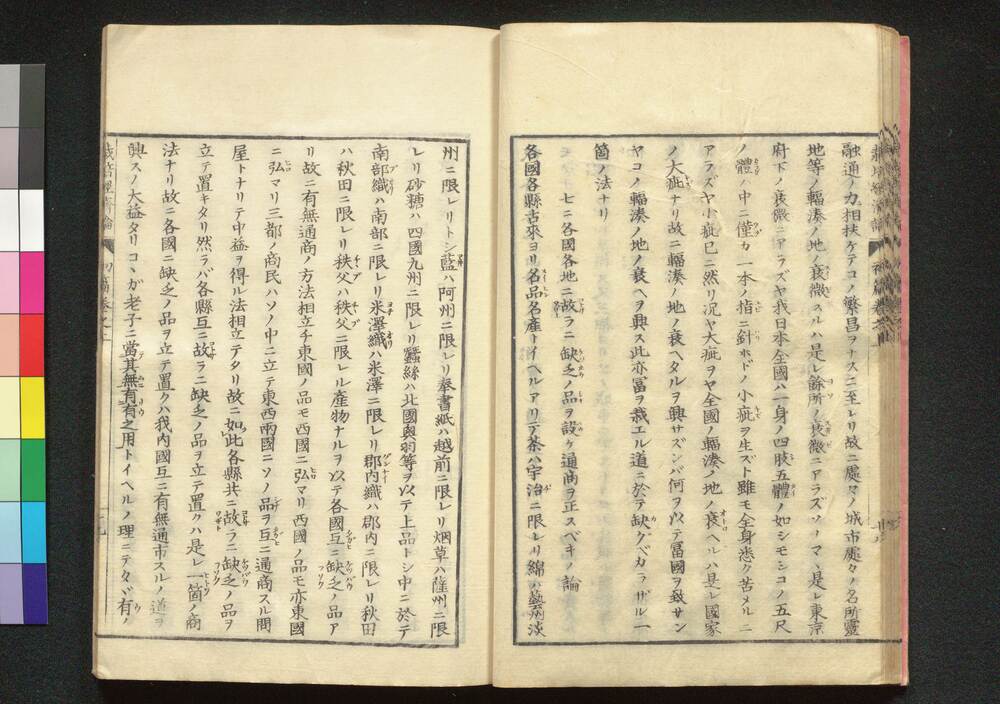 融通ノ力相扶ケテコノ繁昌ヲナスニ至レリ故ニ處々ノ城市處々ノ名所靈
地等ノ輻湊ノ地ノ衰微スルハ是レ餘所ノ衰微ニアラズソノマヽ是レ東京
府下ノ衰微ニアラズヤ我日本全國ハ一身ノ四肢五體ノ如シモシコノ五尺
ノ體ノ中ニ僅カ一本ノ指ニ針ホドノ小疵ヲ生ズト雖モ全身悉ク苦メルニ
アラズヤ小疵已ニ然リ況ヤ大疵ヲヤ全國ノ輻湊ノ地ノ衰ヘルハ是レ國家
ノ大疵ナリ故ニ輻湊ノ地ノ衰ヘタルヲ興サズンバ何ヲ以テ富國ヲ致サン
ヤコノ輻湊ノ地ノ衰ヘヲ興ス此亦富ヲ栽エル道ニ於テ缺グベカラザル一
箇ノ法ナリ
七ニ各國各地ニ故ラニ缺乏ノ品ヲ設ケ通商ヲ正スベキノ論
各國各縣古來ヨリ名品名産トイヘルアリテ茶ハ宇治ニ限レリ綿ハ藝州淡
州ニ限レリトシ藍ハ阿州ニ限レリ奉書紙ハ越前ニ限レリ烟草ハ薩州ニ限
レリ砂糖ハ四國九州ニ限レリ蠶絲ハ北國奥羽等ヲ以テ上品トシ中ニ於テ
南部織ハ南部ニ限レリ米澤織ハ米澤ニ限レリ郡内織ハ郡内ニ限レリ秋田
ハ秋田ニ限レリ秩父ハ秩父ニ限レル産物ナルヲ以テ各國互ニ缺乏ノ品ア
リ故ニ有無通商ノ方法相立チ東國ノ品モ西國ニ弘マリ西國ノ品モ亦東國
ニ弘マリ三都ノ商民ハソノ中ニ立テ東西兩國ニソノ品ヲ互ニ通商スル問
屋トナリテ中益ヲ得ル法相立テタリ故ニ如此各縣共ニ故ラニ缺乏ノ品ヲ
立テ置キタリ然ラバ各縣互ニ故ラニ缺乏ノ品ヲ立テ置クハ是レ一箇ノ商
法ナリ故ニ各國ニ缺乏ノ品ヲ立テ置クハ我内國互ニ有無通市スルノ道ヲ
興スノ大益タリコヽガ老子ニ當其無有有之用トイヘルノ理ニテタヾ有ノ